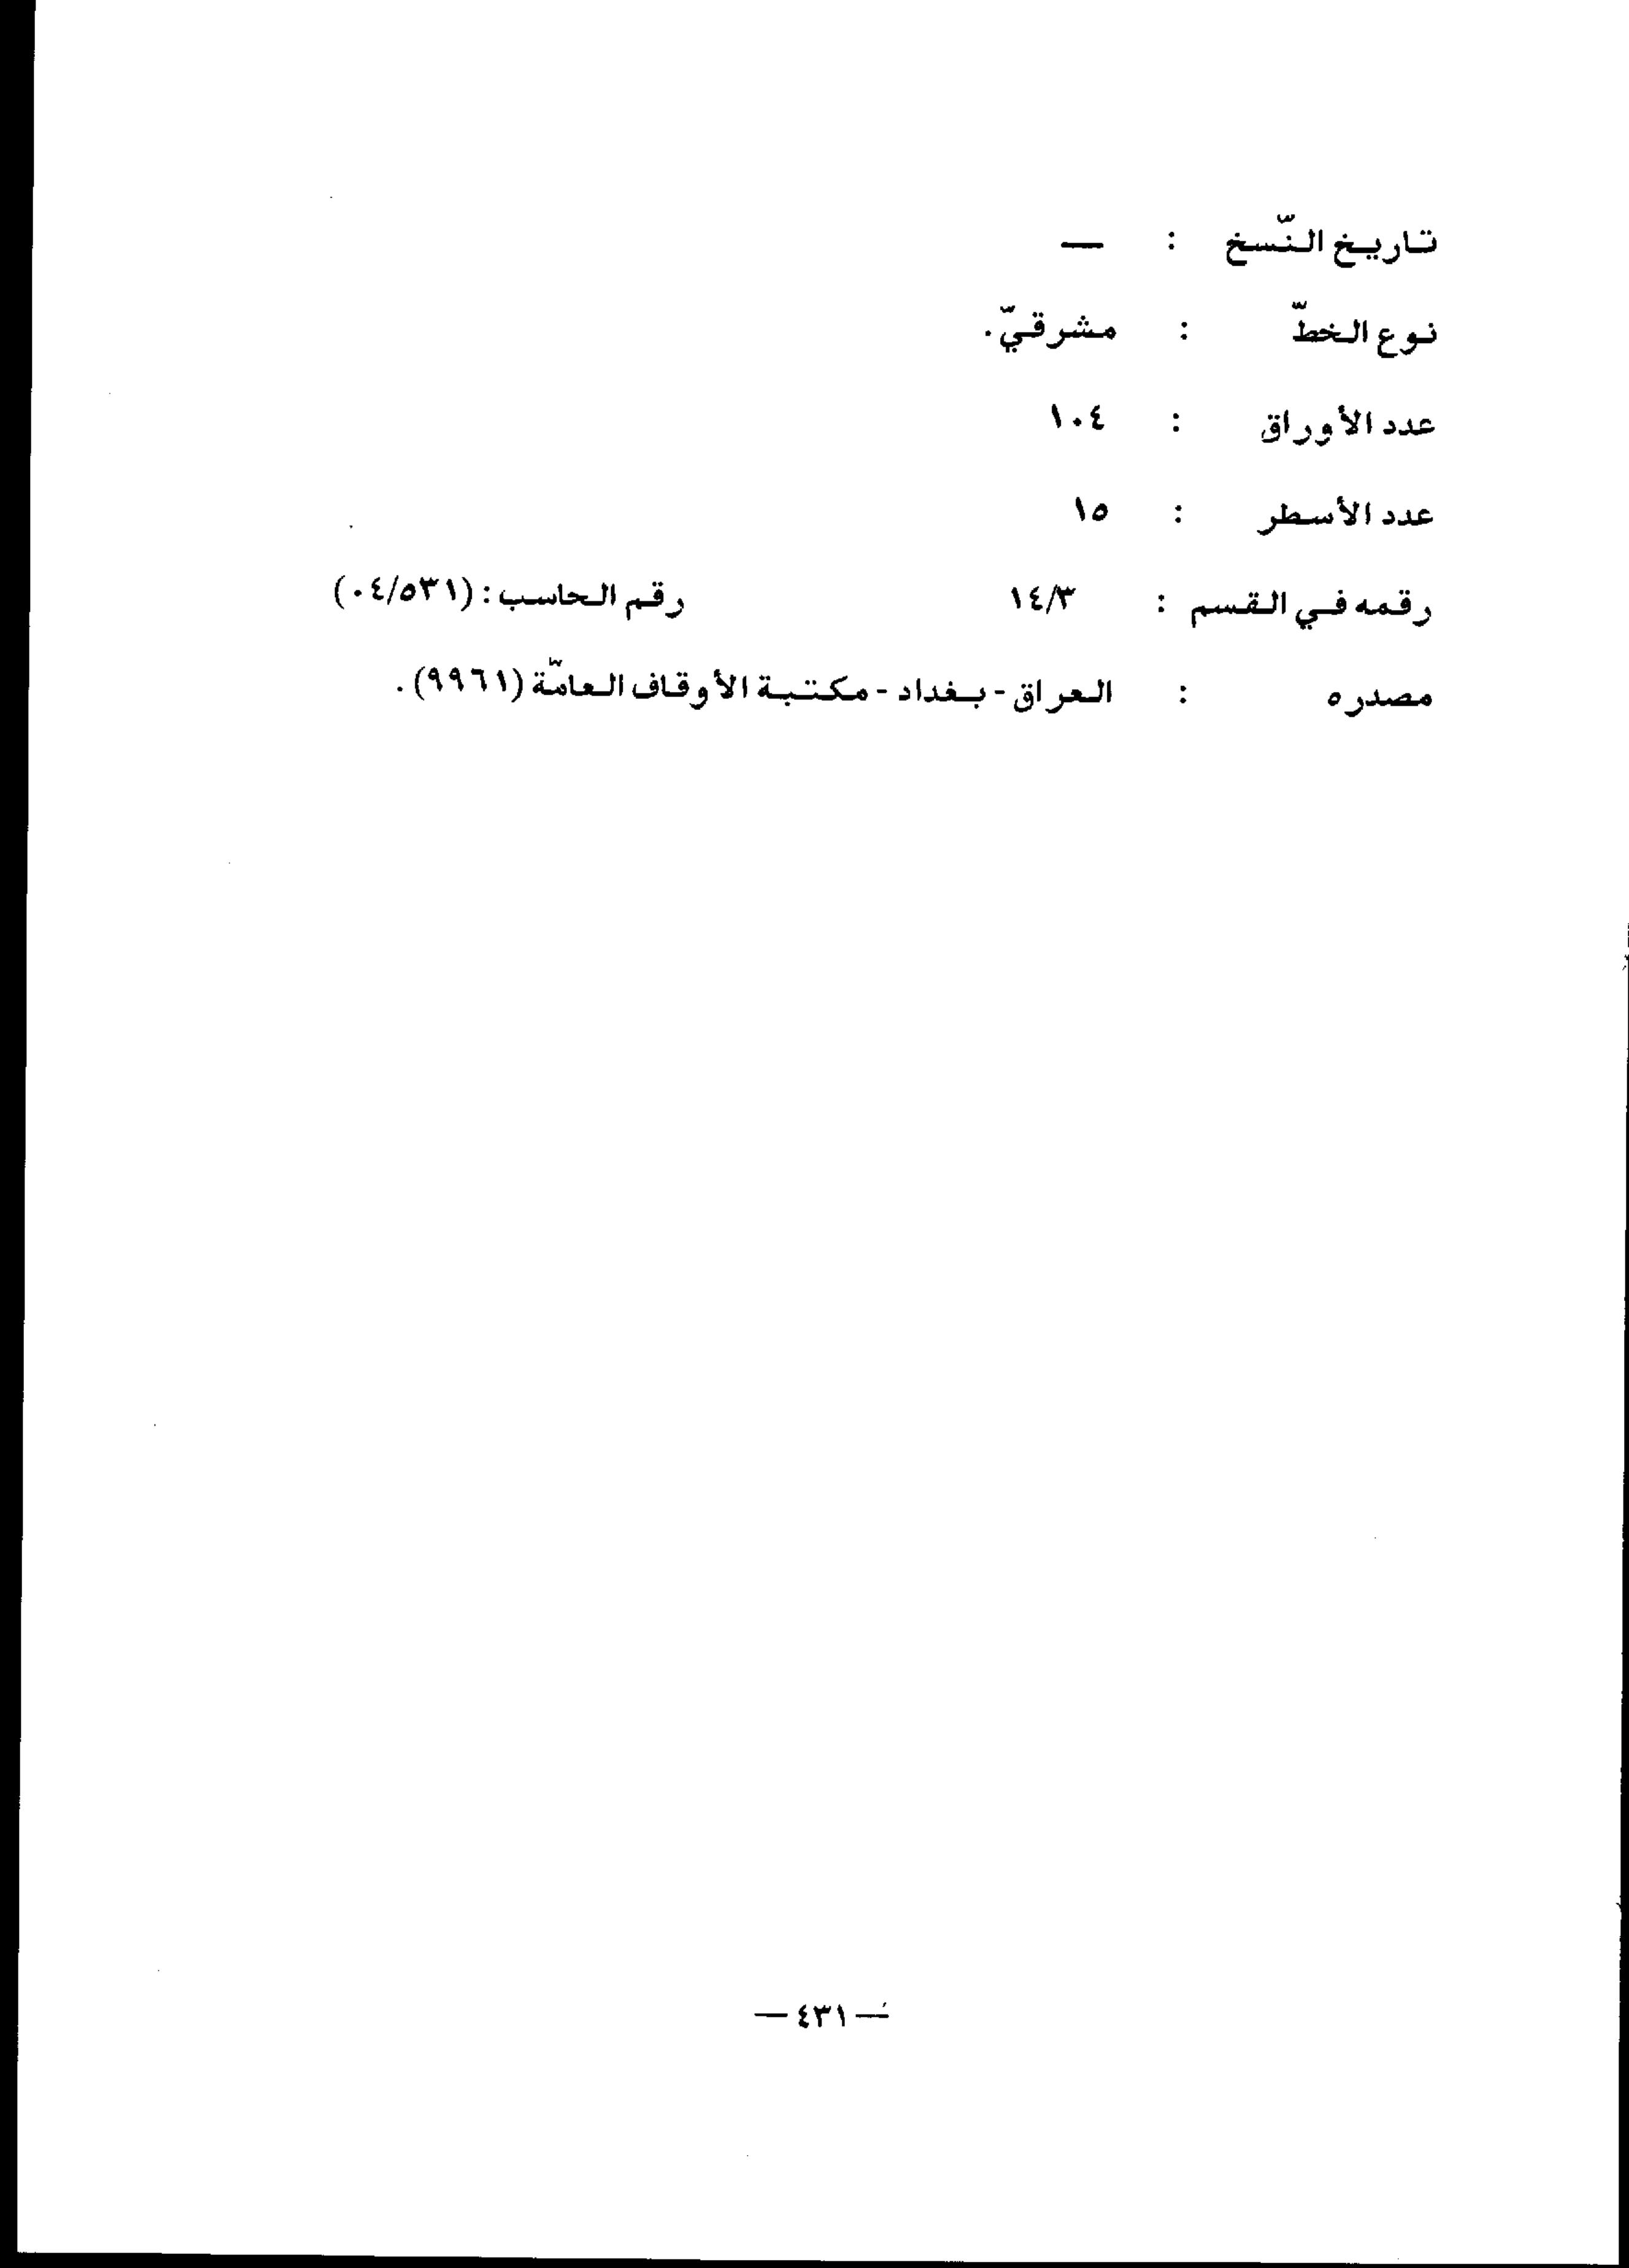 تاريخ النّسخ : —
نوع الخطّ : مشرقيّ.
عدد الأوراق : ١٠٤
عدد الأسطر : ١٥
رقمه في القسم : ١٤/٣ رقم الحاسب : (٠٤/٥٣١)
مصدره : العراق - بغداد - مكتبة الأوقاف العامّة (٩٩٦١).
— ٤٣١ —